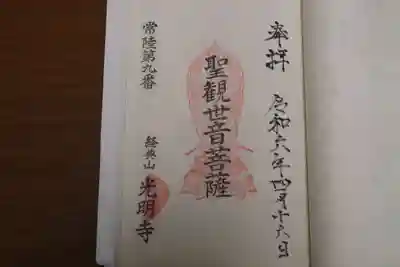 奉拝 令和六年四月十六日
聖観世音菩薩
常陸第九番
光明寺